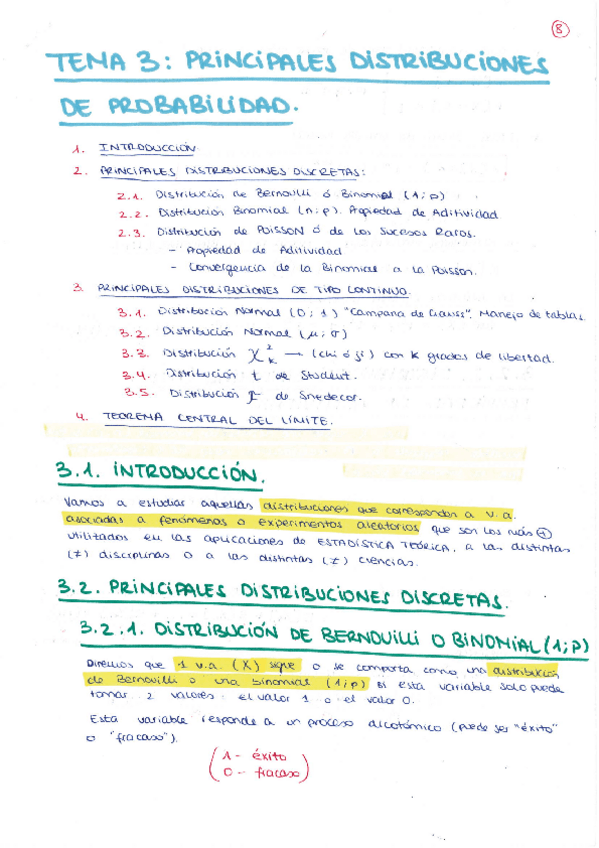 8
TEMA 3: PRINCIPALES DISTRIBUCIONES
DE PROBABILIDAD.
1. INTRODUCCIÓN
2. PRINCIPALES DISTRIBUCIONES DISCRETAS:
2.1. Distribución de Bernouilli ó Binomial (1; p)
2.2. Distribución Binomial (n; p). Propiedad de Aditividad
2.3. Distribución de POISSON ó de los Sucesos Raros.
- Propiedad de Aditividad
- Convergencia de la Binomial a la Poisson.
3. PRINCIPALES DISTRIBUCIONES DE TIPO CONTINUO.
3.1. Distribución Normal (0; 1) "Campana de Gauss". Manejo de tablas.
3.2. Distribución Normal (μ; σ)
3.3. Distribución χ²ₖ → (chi ó ji) con K grados de libertad.
3.4. Distribución t de Student.
3.5. Distribución F de Snedecor.
4. TEOREMA CENTRAL DEL LÍMITE.
3.1. INTRODUCCIÓN.
Vamos a estudiar aquellas distribuciones que corresponden a v.a.
asociadas a fenómenos o experimentos aleatorios que son los más ⊕
utilizados en las aplicaciones de ESTADÍSTICA TEÓRICA, a las distintas
(≠) disciplinas o a las distintas (≠) ciencias.
3.2. PRINCIPALES DISTRIBUCIONES DISCRETAS.
3.2.1. DISTRIBUCIÓN DE BERNOUILLI O BINOMIAL (1; P)
Diremos que 1 v.a. (X) sigue o se comporta como una distribución
de Bernouilli o una binomial (1; p) si esta variable solo puede
tomar 2 valores: el valor 1 o el valor 0.
Esta variable responde a un proceso dicotómico (puede ser "éxito"
o "fracaso").
1 - éxito
0 - fracaso